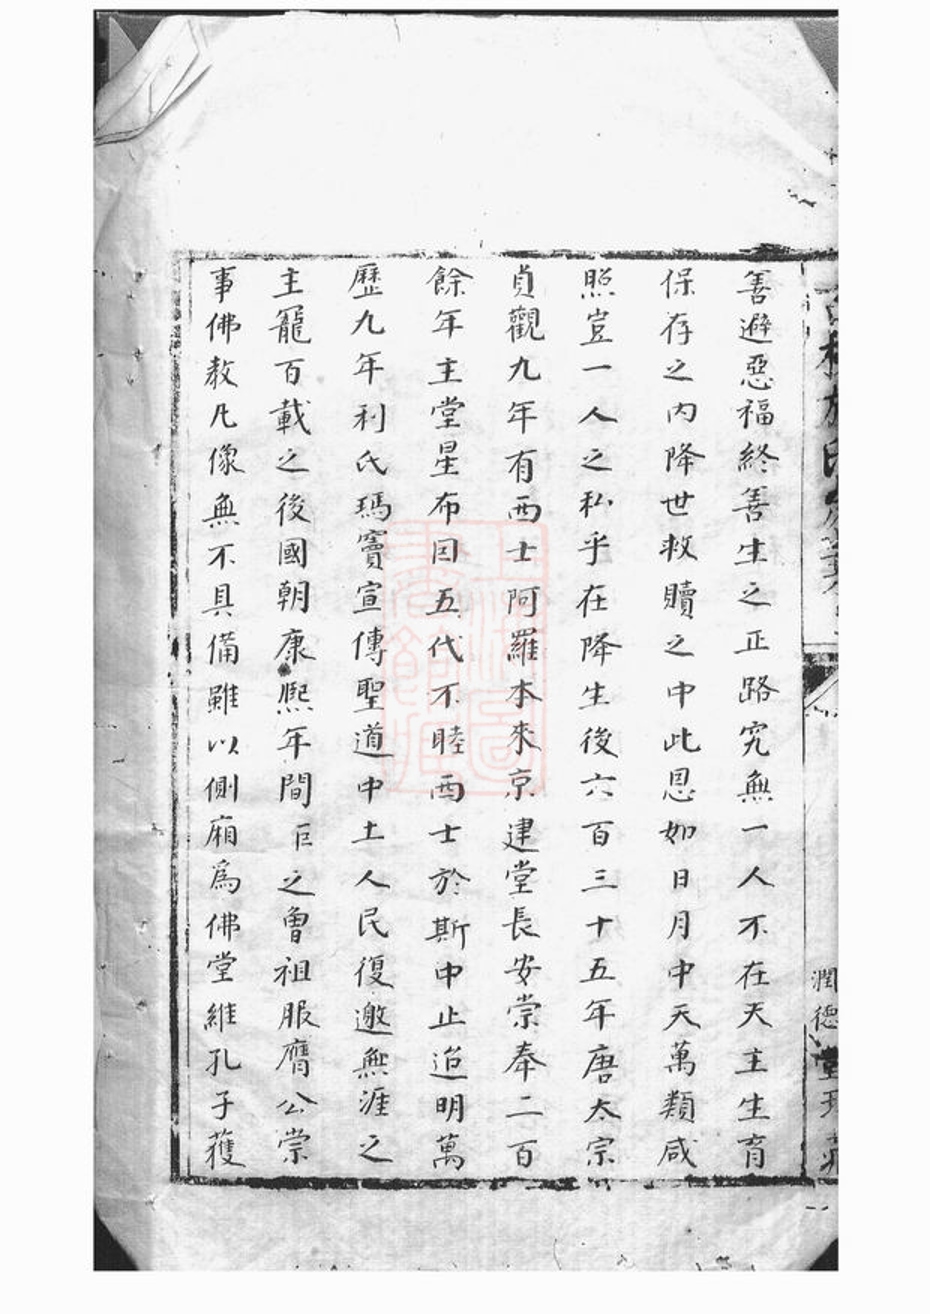 善避惡福終善生之正路究無一人不在天主生育
保存之内降世救贖之中此恩如日月中天萬類咸
照豈一人之私乎在降生後六百三十五年唐太宗
貞觀九年有西士阿羅本來京建堂長安崇奉二百
餘年主堂星布因五代不睦西士於斯中止迨明萬
歷九年利氏瑪竇宣傳聖道中土人民復邀無涯之
主寵百載之後國朝康熙年間臣之曾祖服膺公崇
事佛教凡像無不具備雖以側廂為佛堂維孔子獲
潤德堂